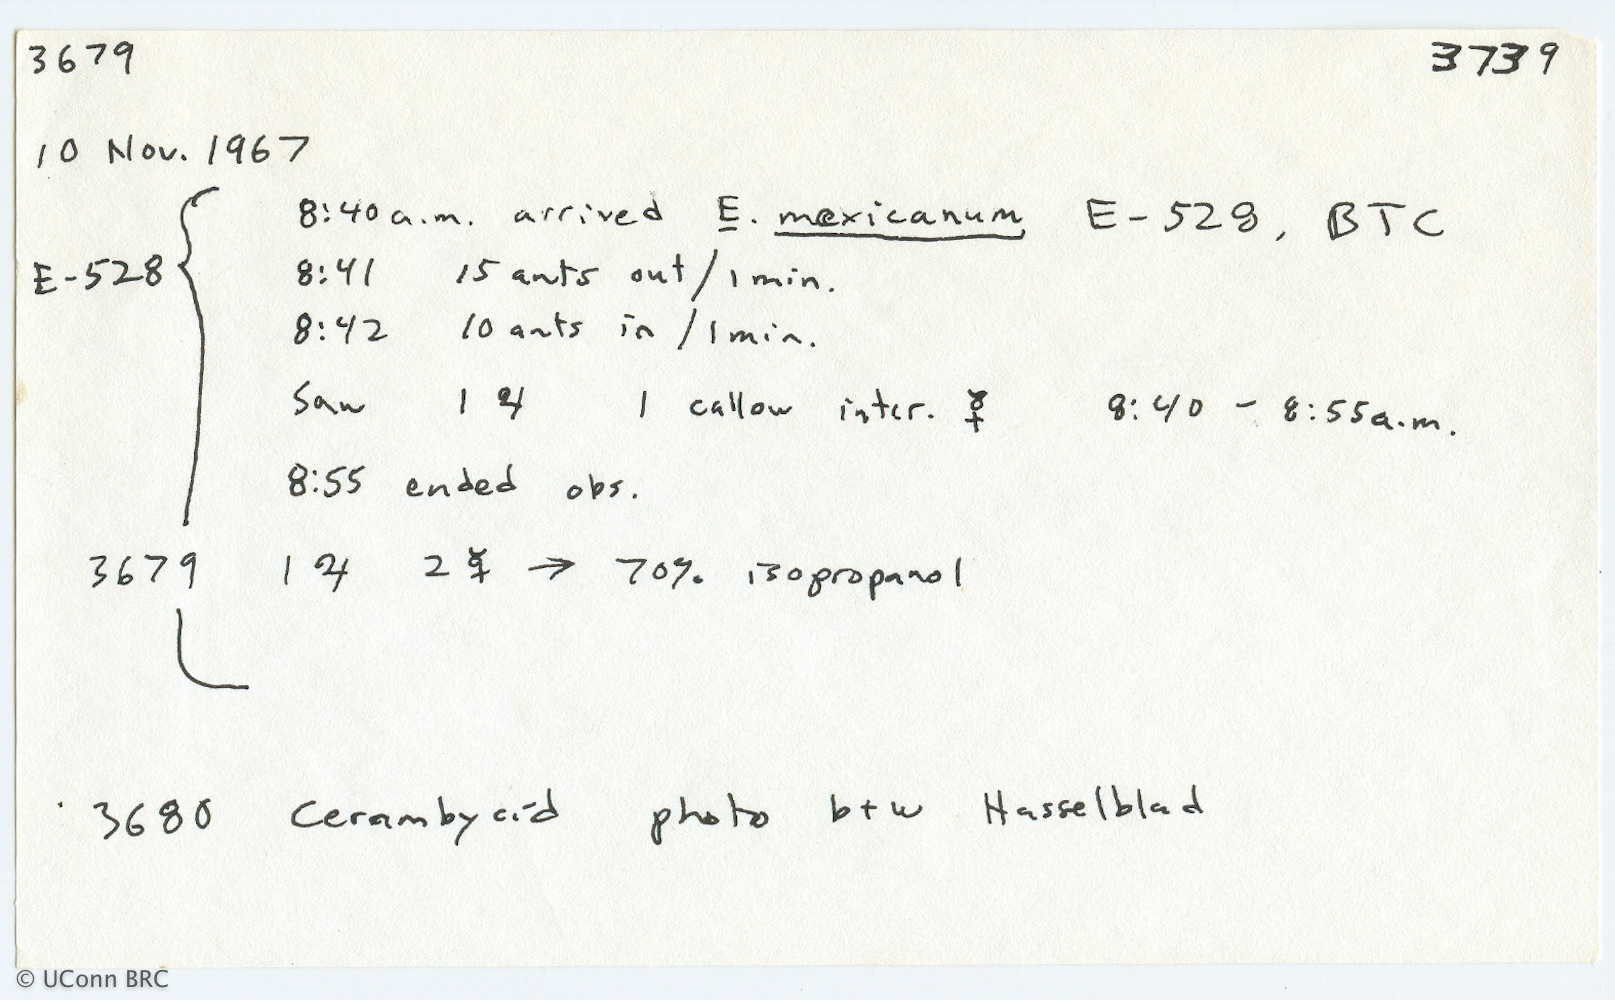 3679 3739
10 Nov. 1967
8:40 a.m. arrived E. mexicanum E-528, BTC
E-528 8:41 15 ants out / 1 min.
8:42 10 ants in / 1 min.
Saw 1 ♃ 1 callow inter. ☿ 8:40 - 8:55 a.m.
8:55 ended obs.
3679 1 ♃ 2 ☿ → 70% isopropanol
3680 Cerambycid photo b+w Hasselblad
© UConn BRC